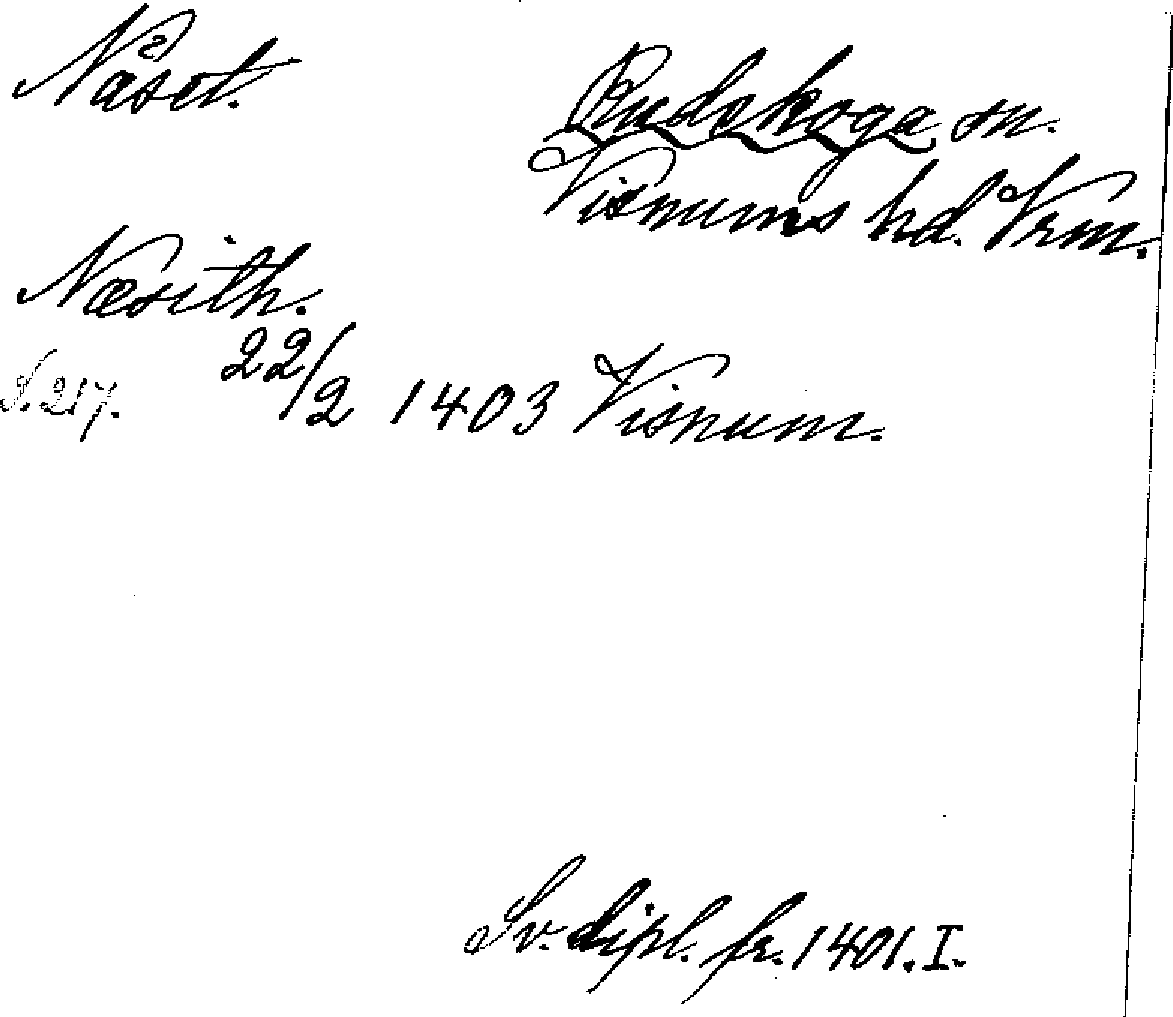 Näset.
Rudskoga sn.
Visnums hd. Vrm.
Næsith.
S. 217.
22/2 1403 Visnum.
Sv. dipl. fr. 1401. I.